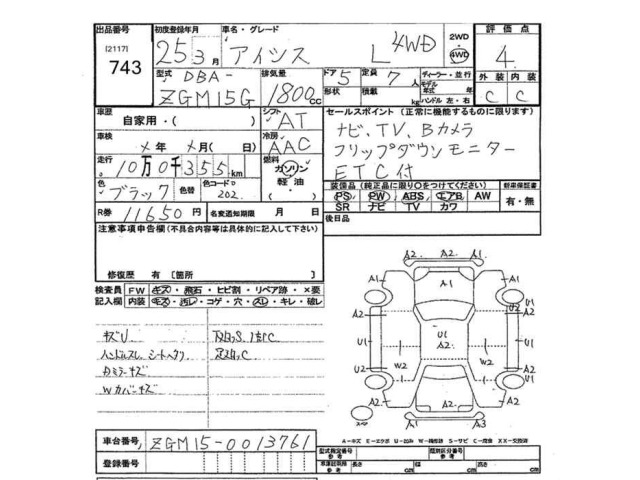 出品番号 初度登録年月 車名・グレード 2WD 4WD 評価点
[2117]
743
25年3月 アイシス L 4WD 4
型式 DBA- 排気量 ドア 5 定員 7人 ディーラー・並行 外装 内装
ZGM15G 1800cc 形状 積載 kg モデル年式 年式 ハンドル 左・右 C C
車歴 自家用・( ) シフト AT セールスポイント (正常に機能するものに限ります)
車検 メ年 メ月(日) 冷房 AAC ナビ、TV、Bカメラ
走行 10万0千355km 燃料 ガソリン 軽油 フリップダウンモニター
ETC付
色 ブラック 色替 色コード 202
装備品 (純正品に限り〇をつけてください) 新車保証書
PS PW ABS エアB AW 有・無
SR ナビ TV カワ
R券 11650円 名変通知期限 月 日
後日品
注意事項申告欄(不具合内容等は具体的に記入して下さい)
修復歴 有 [箇所 ]
検査員 記入欄
FW キズ・飛石・ヒビ割・リペア跡・×要
内装 キズ・汚レ・コゲ・穴・スレ・キレ・破レ
キズU
ハンドルスレ
カミラーキズ
Wカバーキズ
A2 A2 A1
A1 A1 A1
U1
A2 A2
U1 U1 U1
A2
W2 W2
U2 U1
A2 A2
A2
A1 A3
A-キズ E-エクボ U-凹み W-補修跡 S-サビ C-腐食 XX-交換済
車台番号 ZGM15-0013761
登録番号
型式指定番号 参考 類別区分番号 参考
車庫証明用 参考 長さ cm 幅 cm 高さ cm